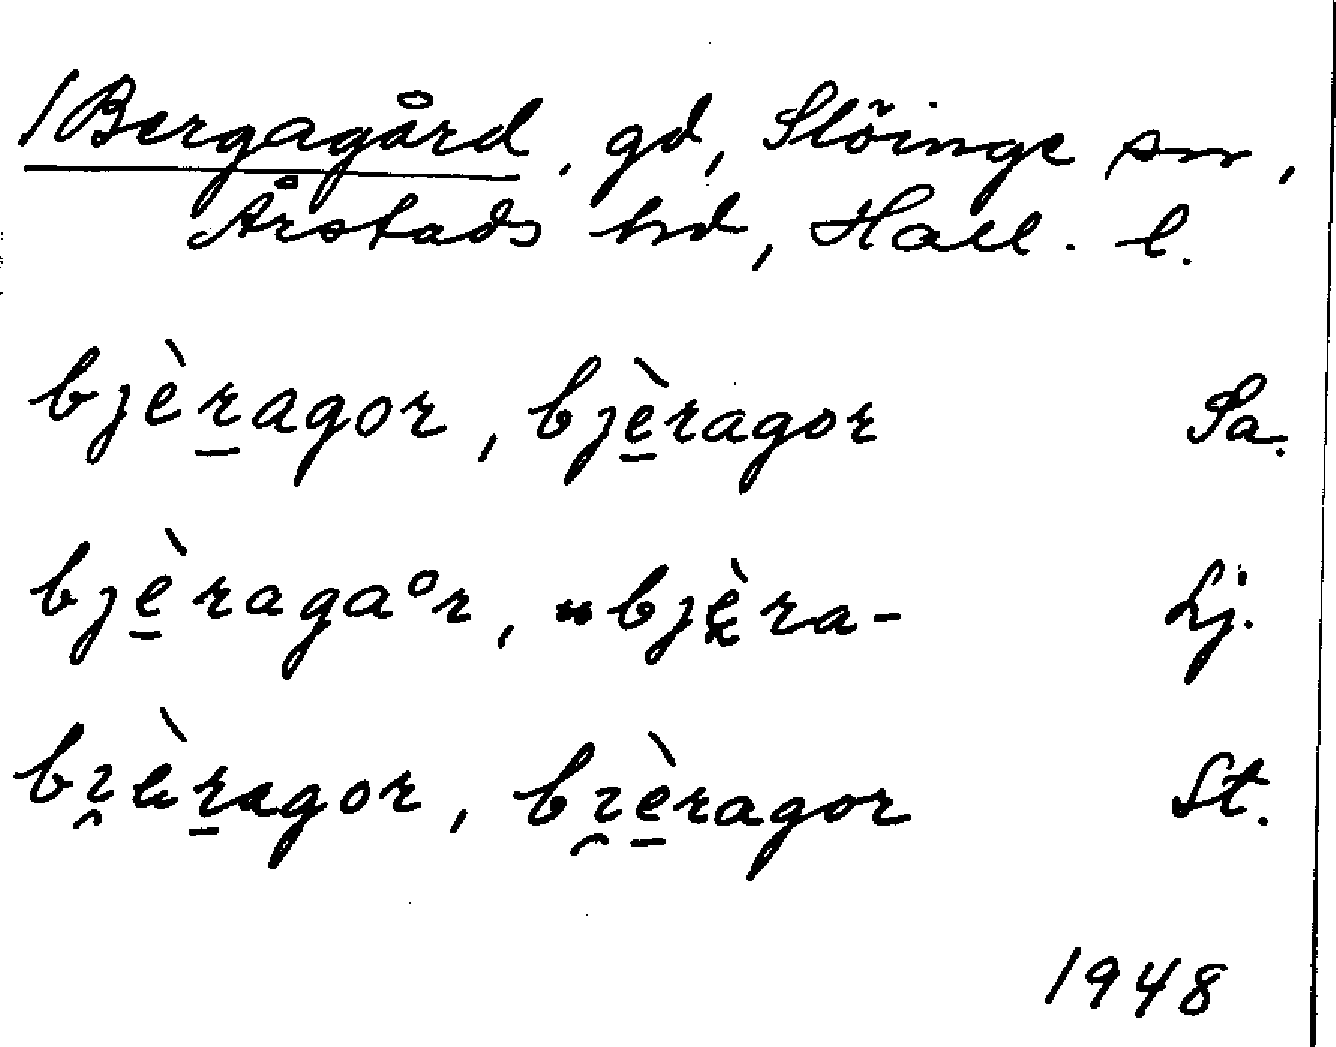 /Bergagård, gd, Slöinge sn,
Årstads hd, Hall. l.
bjèr̲agor, bjè̲ragor Sa.
bjè̲ragaᵒr, "bjèra- Lj.
bɿ̯èr̲agor, bɿ̯è̲ragor St.
1948